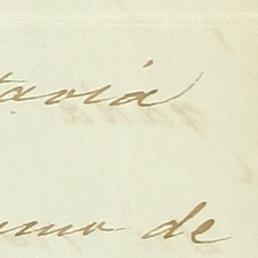 tavia
umo de